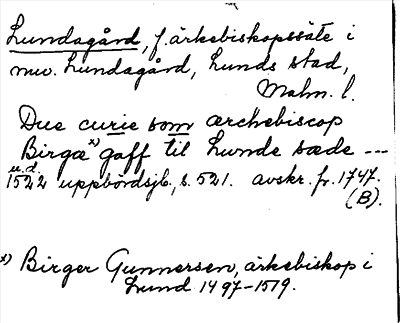 Lundagård, f. ärkebiskopssäte i
nuv. Lundagård, Lunds stad,
Malm. l.
Due curie som ærchebiscop
Birge x) gaff til Lunde sæde ---
u.d.
1522 uppbördsjb., s. 521. avskr. fr. 1747.
(B).
x) Birger Gunnersen, ärkebiskop i
Lund 1497-1519.